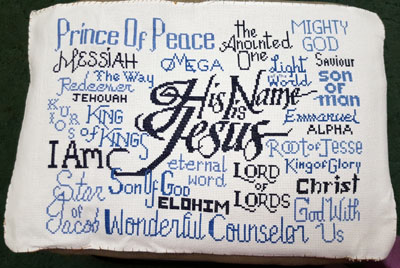 Prince Of Peace
the Anointed One
MIGHTY GOD
MESSIAH
OMEGA
Light of the World
Saviour
The Way
son of man
Redeemer
JEHOVAH
His Name is Jesus
KURIOS
KING of KINGS
Emmanuel
ALPHA
I Am
Root of Jesse
eternal word
LORD of LORDS
King of Glory
Star of Jacob
Son Of God
Christ
ELOHIM
God With Us
Wonderful Counselor